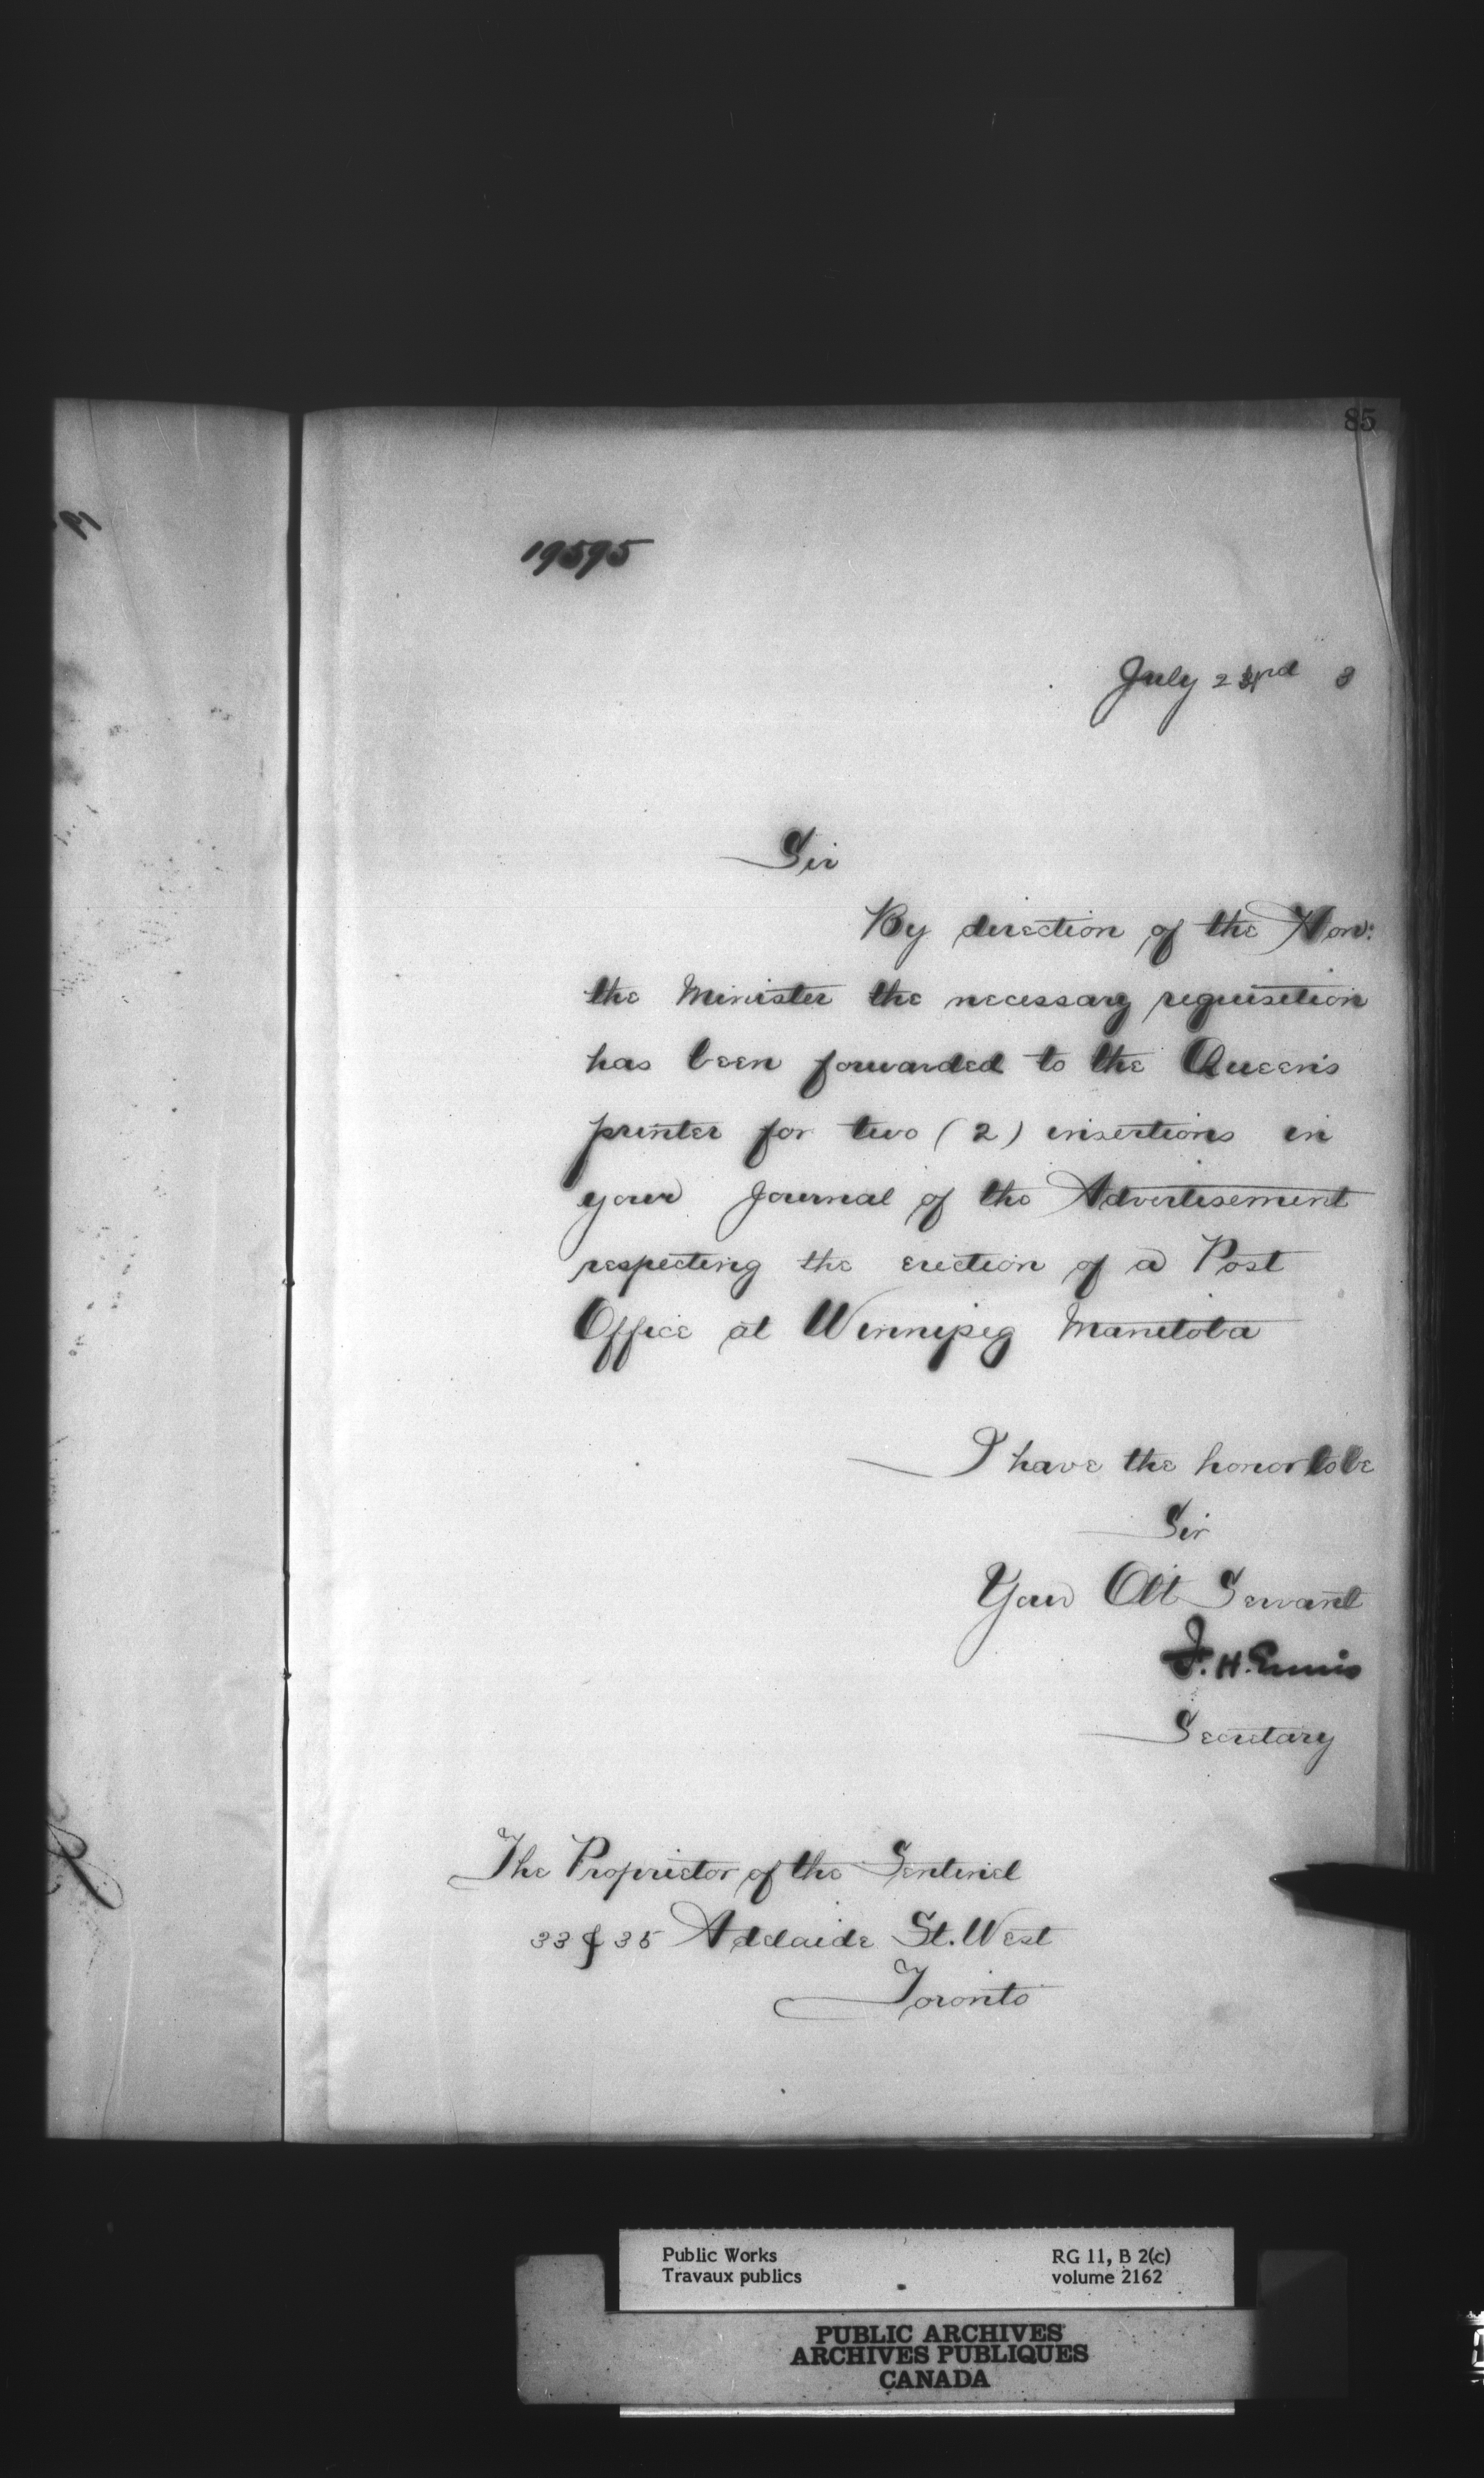 85
19595
July 23rd 3
Sir
By direction of the Hon:
the Minister the necessary requisition
has been forwarded to the Queen's
printer for two (2) insertions in
your Journal of the Advertisement
respecting the erection of a Post
Office at Winnipeg Manitoba
I have the honor to be
Sir
Your Obt Servant
F. H. Ennis
Secretary
The Proprietor of the Sentinel
33 & 35 Adelaide St. West
Toronto
Public Works RG 11, B 2(c)
Travaux publics volume 2162
PUBLIC ARCHIVES
ARCHIVES PUBLIQUES
CANADA